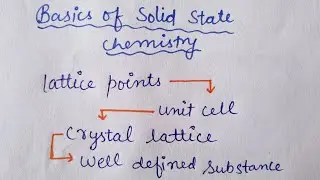 Basics of Solid State
chemistry
lattice points
unit cell
Crystal lattice
Well defined substance